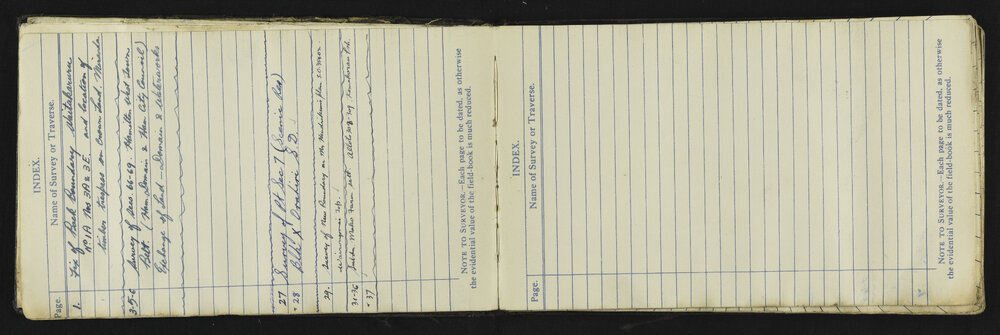 INDEX.
Page. Name of Survey or Traverse.
1. Fix of Back Boundary Waitakaruru
No 1A Nos 3A & 3E and location of
timber trespass on Crown Land. Miranda
3-5-6 Survey of Secs 66-69. Hamilton West Town
Belt. (Ham. Domain & Ham City Council)
Exchange of Land - Domain & Waterworks
27 Survey of Pt Sec 7 (Scenic Res)
" 28 Blk X Orahiri S.D.
29. Survey of New Boundary on the
31-36
" 37
NOTE TO SURVEYOR.—Each page to be dated, as otherwise
the evidential value of the field-book is much reduced.
INDEX.
Page. Name of Survey or Traverse.
NOTE TO SURVEYOR.—Each page to be dated, as otherwise
the evidential value of the field-book is much reduced.